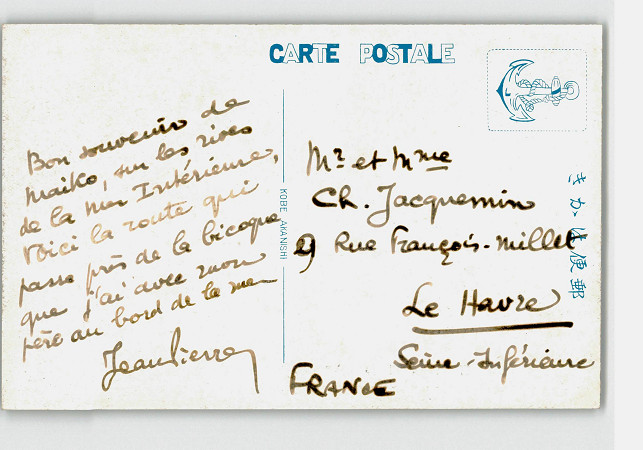 CARTE POSTALE
Bon souvenir de
Maiko, sur les rives
de la Mer Intérieure,
Voici la route qui
passe près de la bicoque
que j'ai avec mon
père au bord de la mer
Jean Pierre
KOBE AKANISHI
Mr et Mme
Ch. Jacquemin
9 Rue François-Millet
Le Havre
Seine-Inférieure
FRANCE
きかは便郵